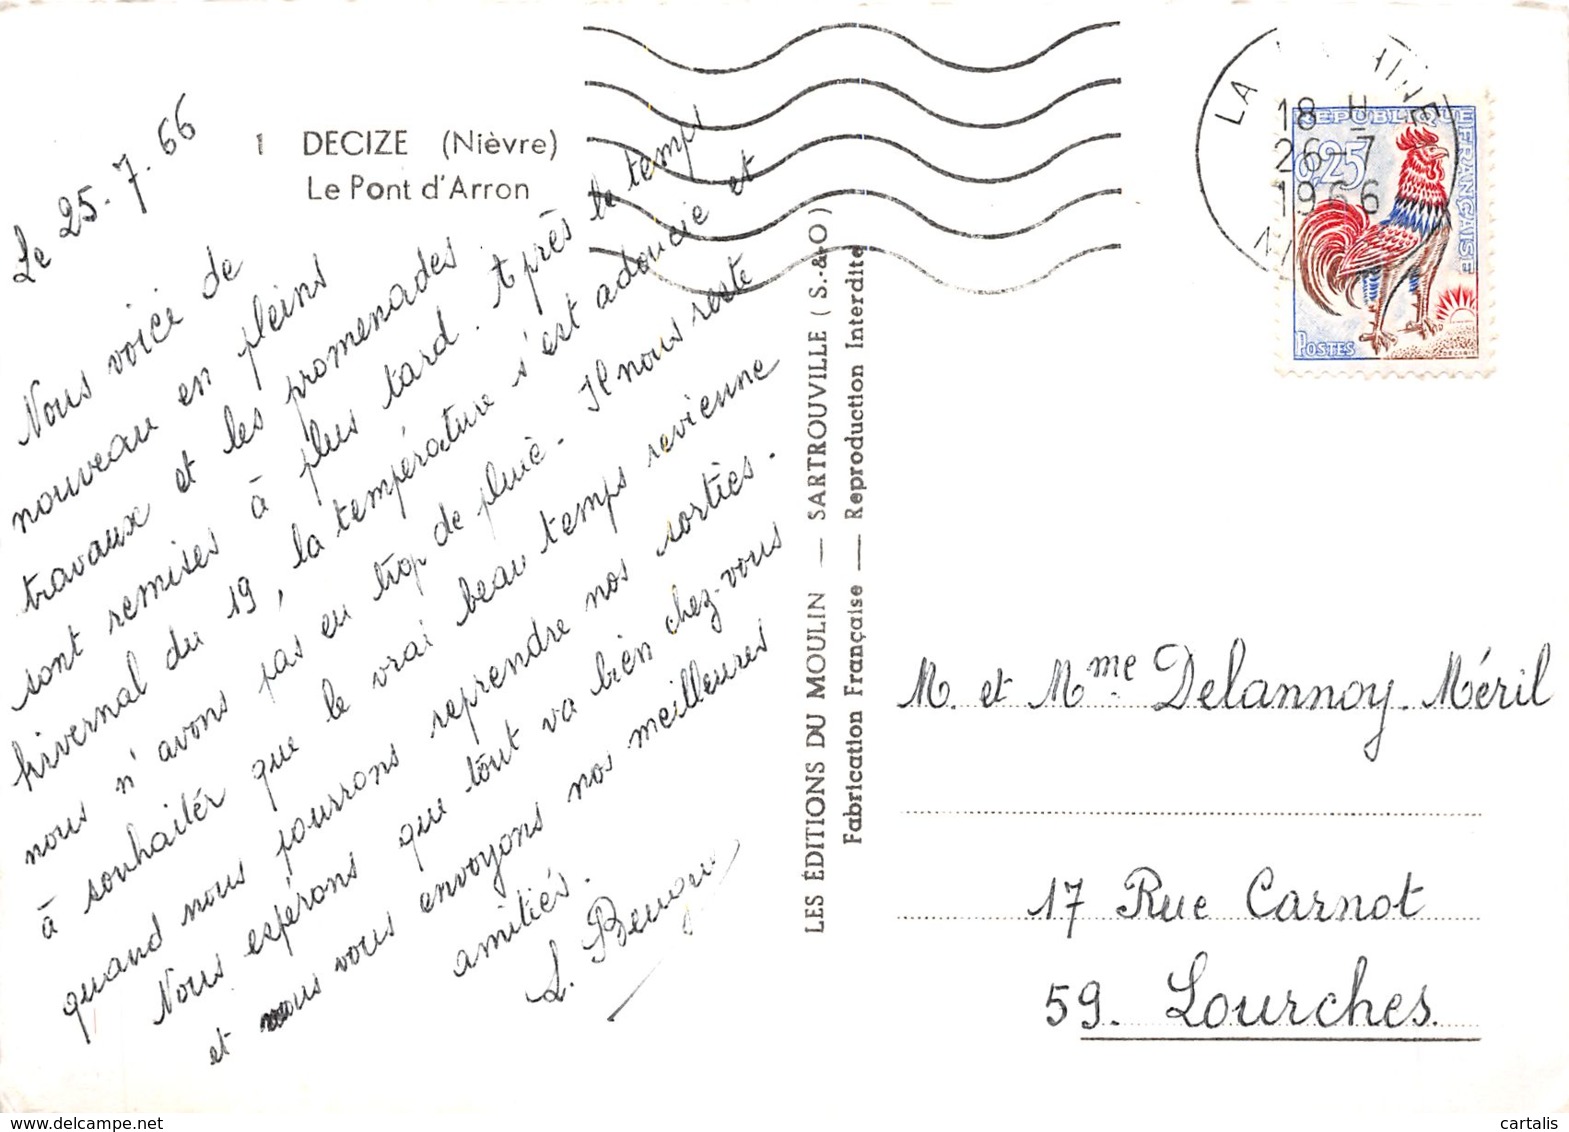 1 DECIZE (Nièvre)
Le Pont d'Arron
Le 25.7.66
Nous voici de
nouveau en pleins
travaux et les promenades
sont remises à plus tard. Après le temps
hivernal du 19, la température s'est adoucie et
nous n'avons pas eu trop de pluie. Il nous reste
à souhaiter que le vrai beau temps revienne
quand nous pourrons reprendre nos sorties.
Nous espérons que tout va bien chez-vous
et vous envoyons nos meilleures
amitiés.
LES ÉDITIONS DU MOULIN — SARTROUVILLE (S.-&-O)
Fabrication Française — Reproduction Interdite
LA
18 H
26-7
1966
REPUBLIQUE FRANÇAISE
0,25
POSTES
M. et Mme Delannoy-Méril
17 Rue Carnot
59. Lourches
cartalis